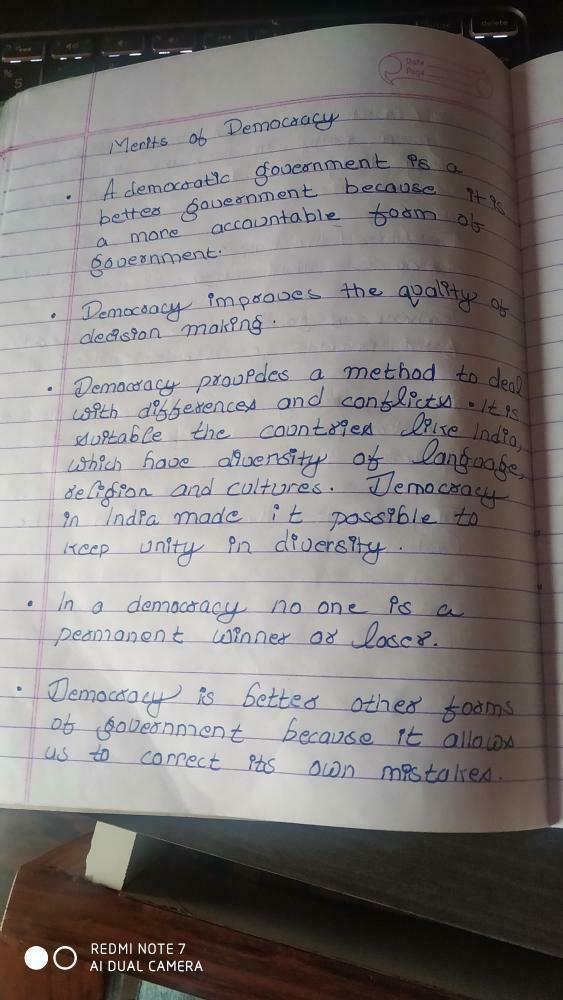 delete
%
5
Date
Page
Merits of Democracy
• A democratic government is a
better government because it is
a more accountable form of
government.
• Democracy improves the quality of
decision making.
• Democracy provides a method to deal
with differences and conflicts. It is
suitable the countries like India,
which have diversity of language,
religion and cultures. Democracy
in India made it possible to
keep unity in diversity.
• In a democracy no one is a
permanent winner or loser.
• Democracy is better other forms
of government because it allows
us to correct its own mistakes.
REDMI NOTE 7
AI DUAL CAMERA